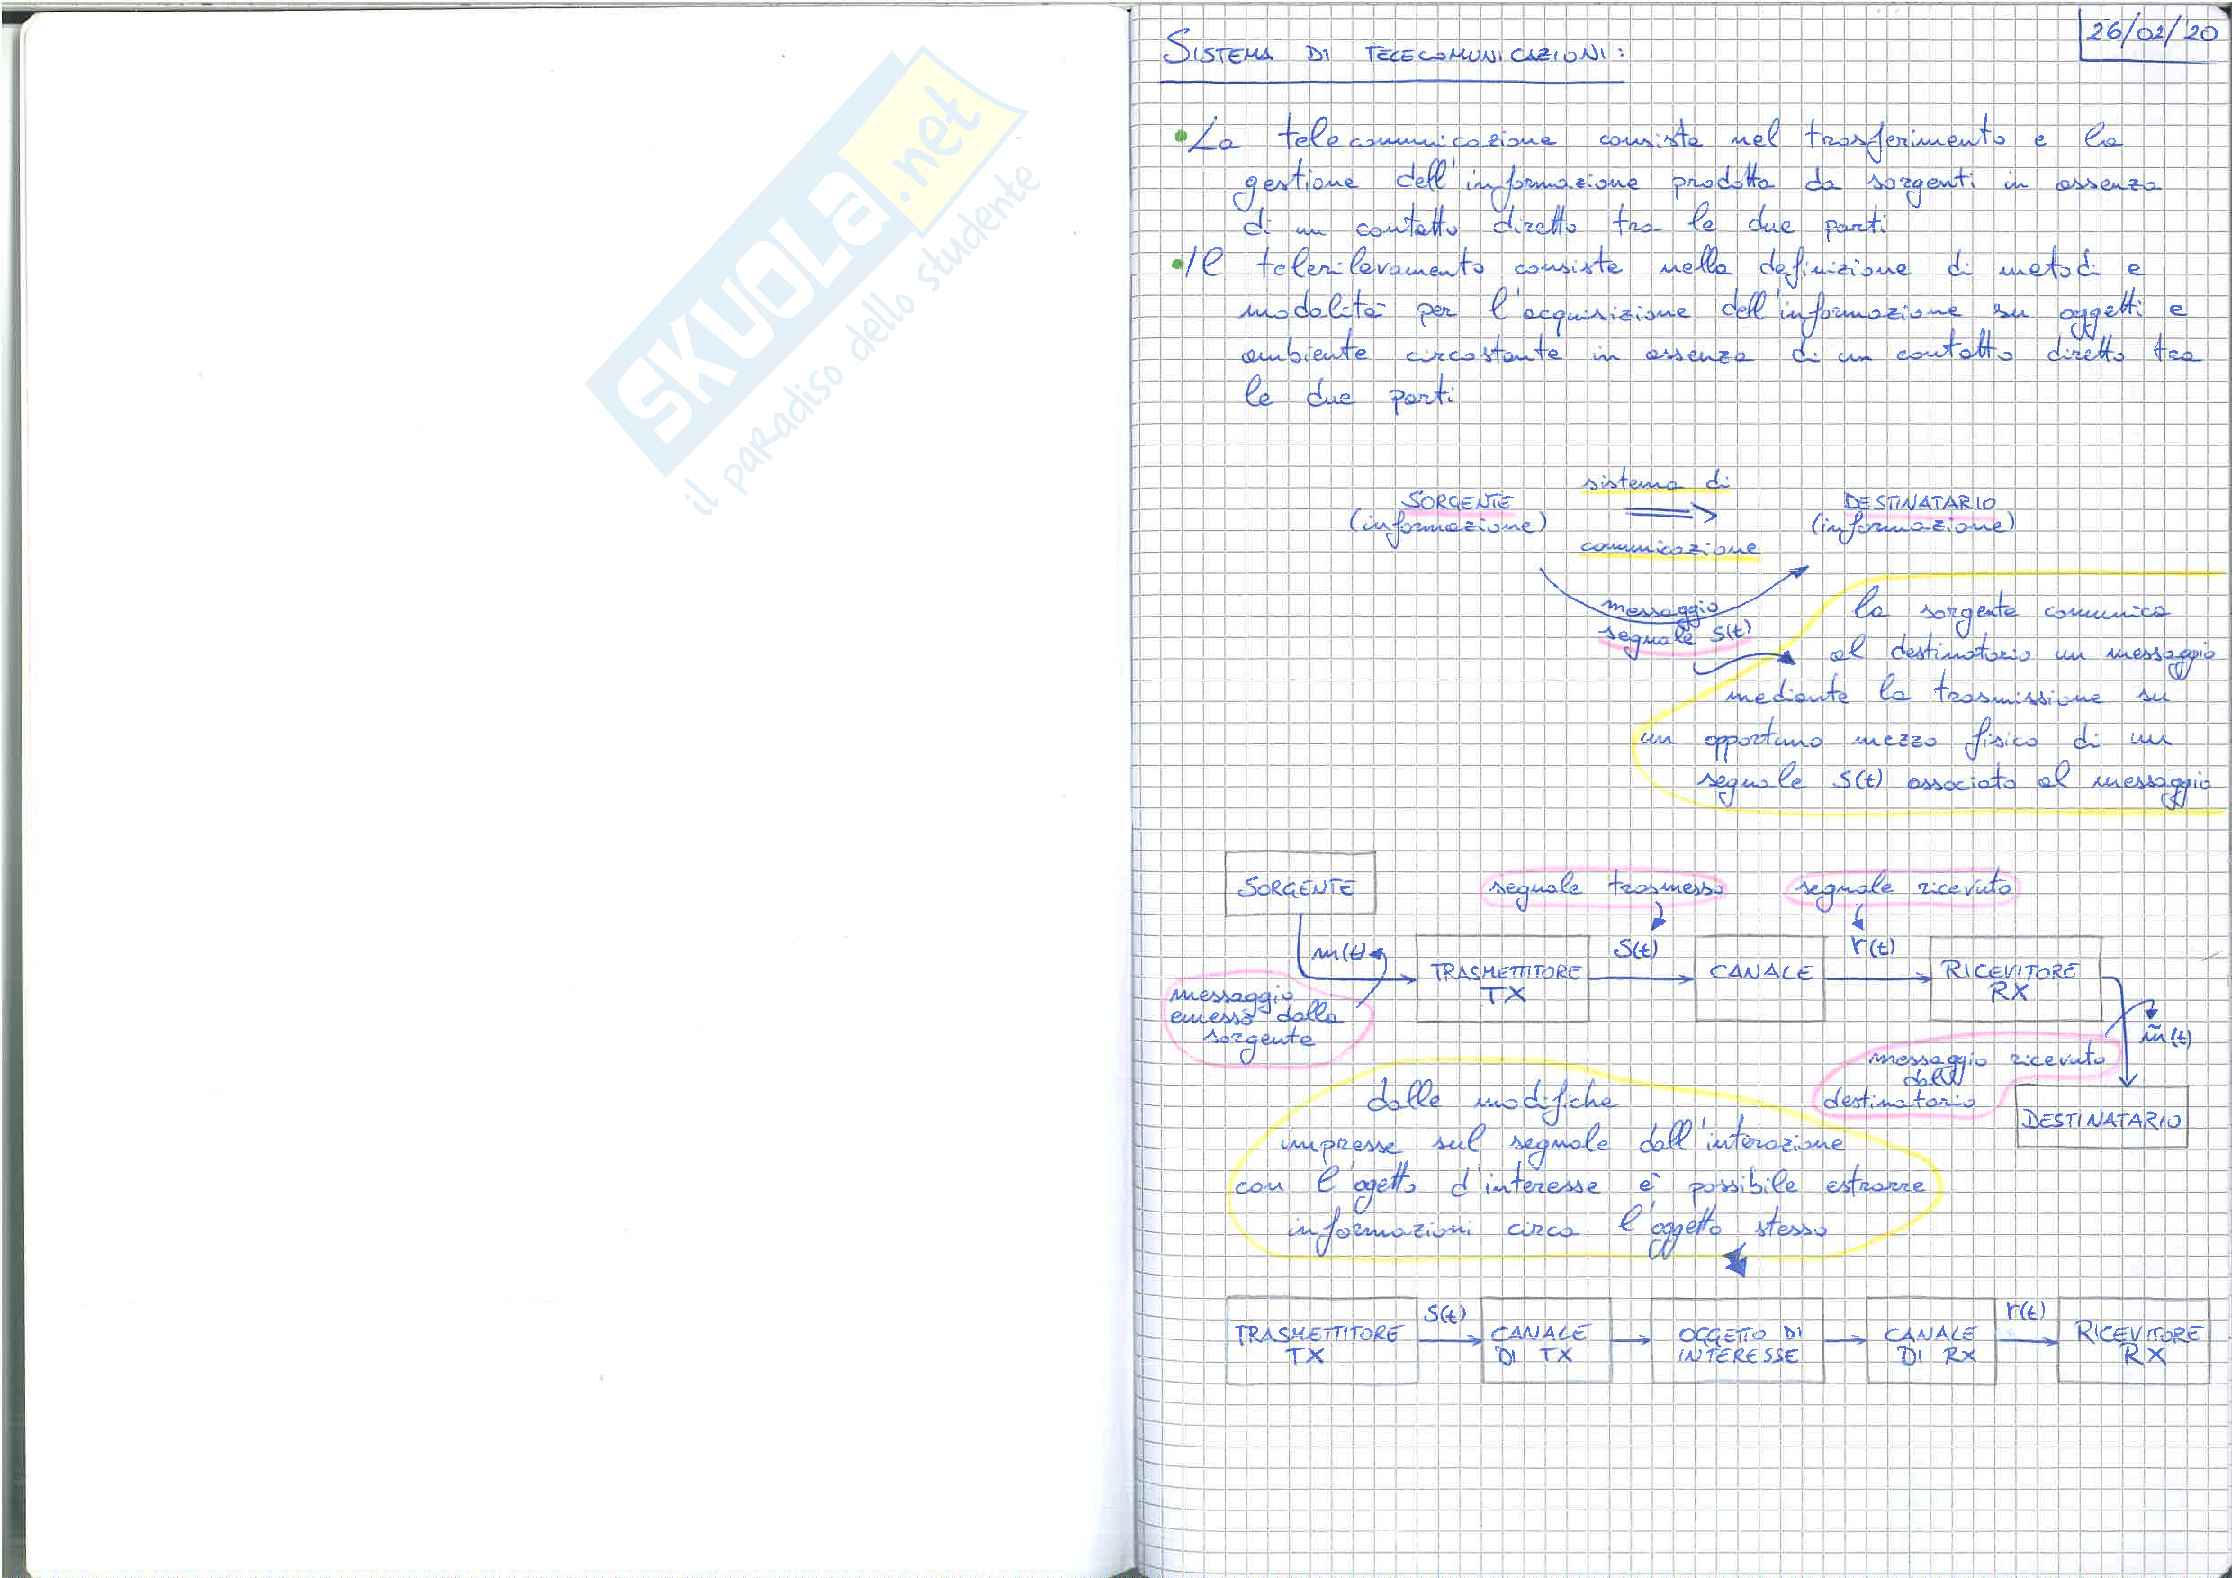 SKUOLA.net
il paradiso dello studente
26/02/'20
SISTEMA DI TELECOMUNICAZIONI:
•La telecomunicazione consiste nel trasferimento e la
gestione dell'informazione prodotta da sorgenti in assenza
di un contatto diretto tra le due parti
•Il telerilevamento consiste nella definizione di metodi e
modalità per l'acquisizione dell'informazione su oggetti e
ambiente circostante in assenza di un contatto diretto tra
le due parti
sistema di
SORGENTE
DESTINATARIO
(informazione)
(informazione)
comunicazione
messaggio
segnale s(t)
la sorgente comunica
al destinatario un messaggio
mediante la trasmissione su
un opportuno mezzo fisico di un
segnale s(t) associato al messaggio
SORGENTE
segnale trasmesso
segnale ricevuto
m(t)
TRASMETTITORE
TX
s(t)
CANALE
r(t)
RICEVITORE
RX
messaggio
emesso dalla
sorgente
m̃(t)
messaggio ricevuto
dal
destinatario
DESTINATARIO
dalle modifiche
impresse sul segnale dall'interazione
con l'ogetto d'interesse è possibile estrarre
informazioni circa l'oggetto stesso
TRASMETTITORE
TX
s(t)
CANALE
DI TX
OGGETTO DI
INTERESSE
CANALE
DI RX
r(t)
RICEVITORE
RX